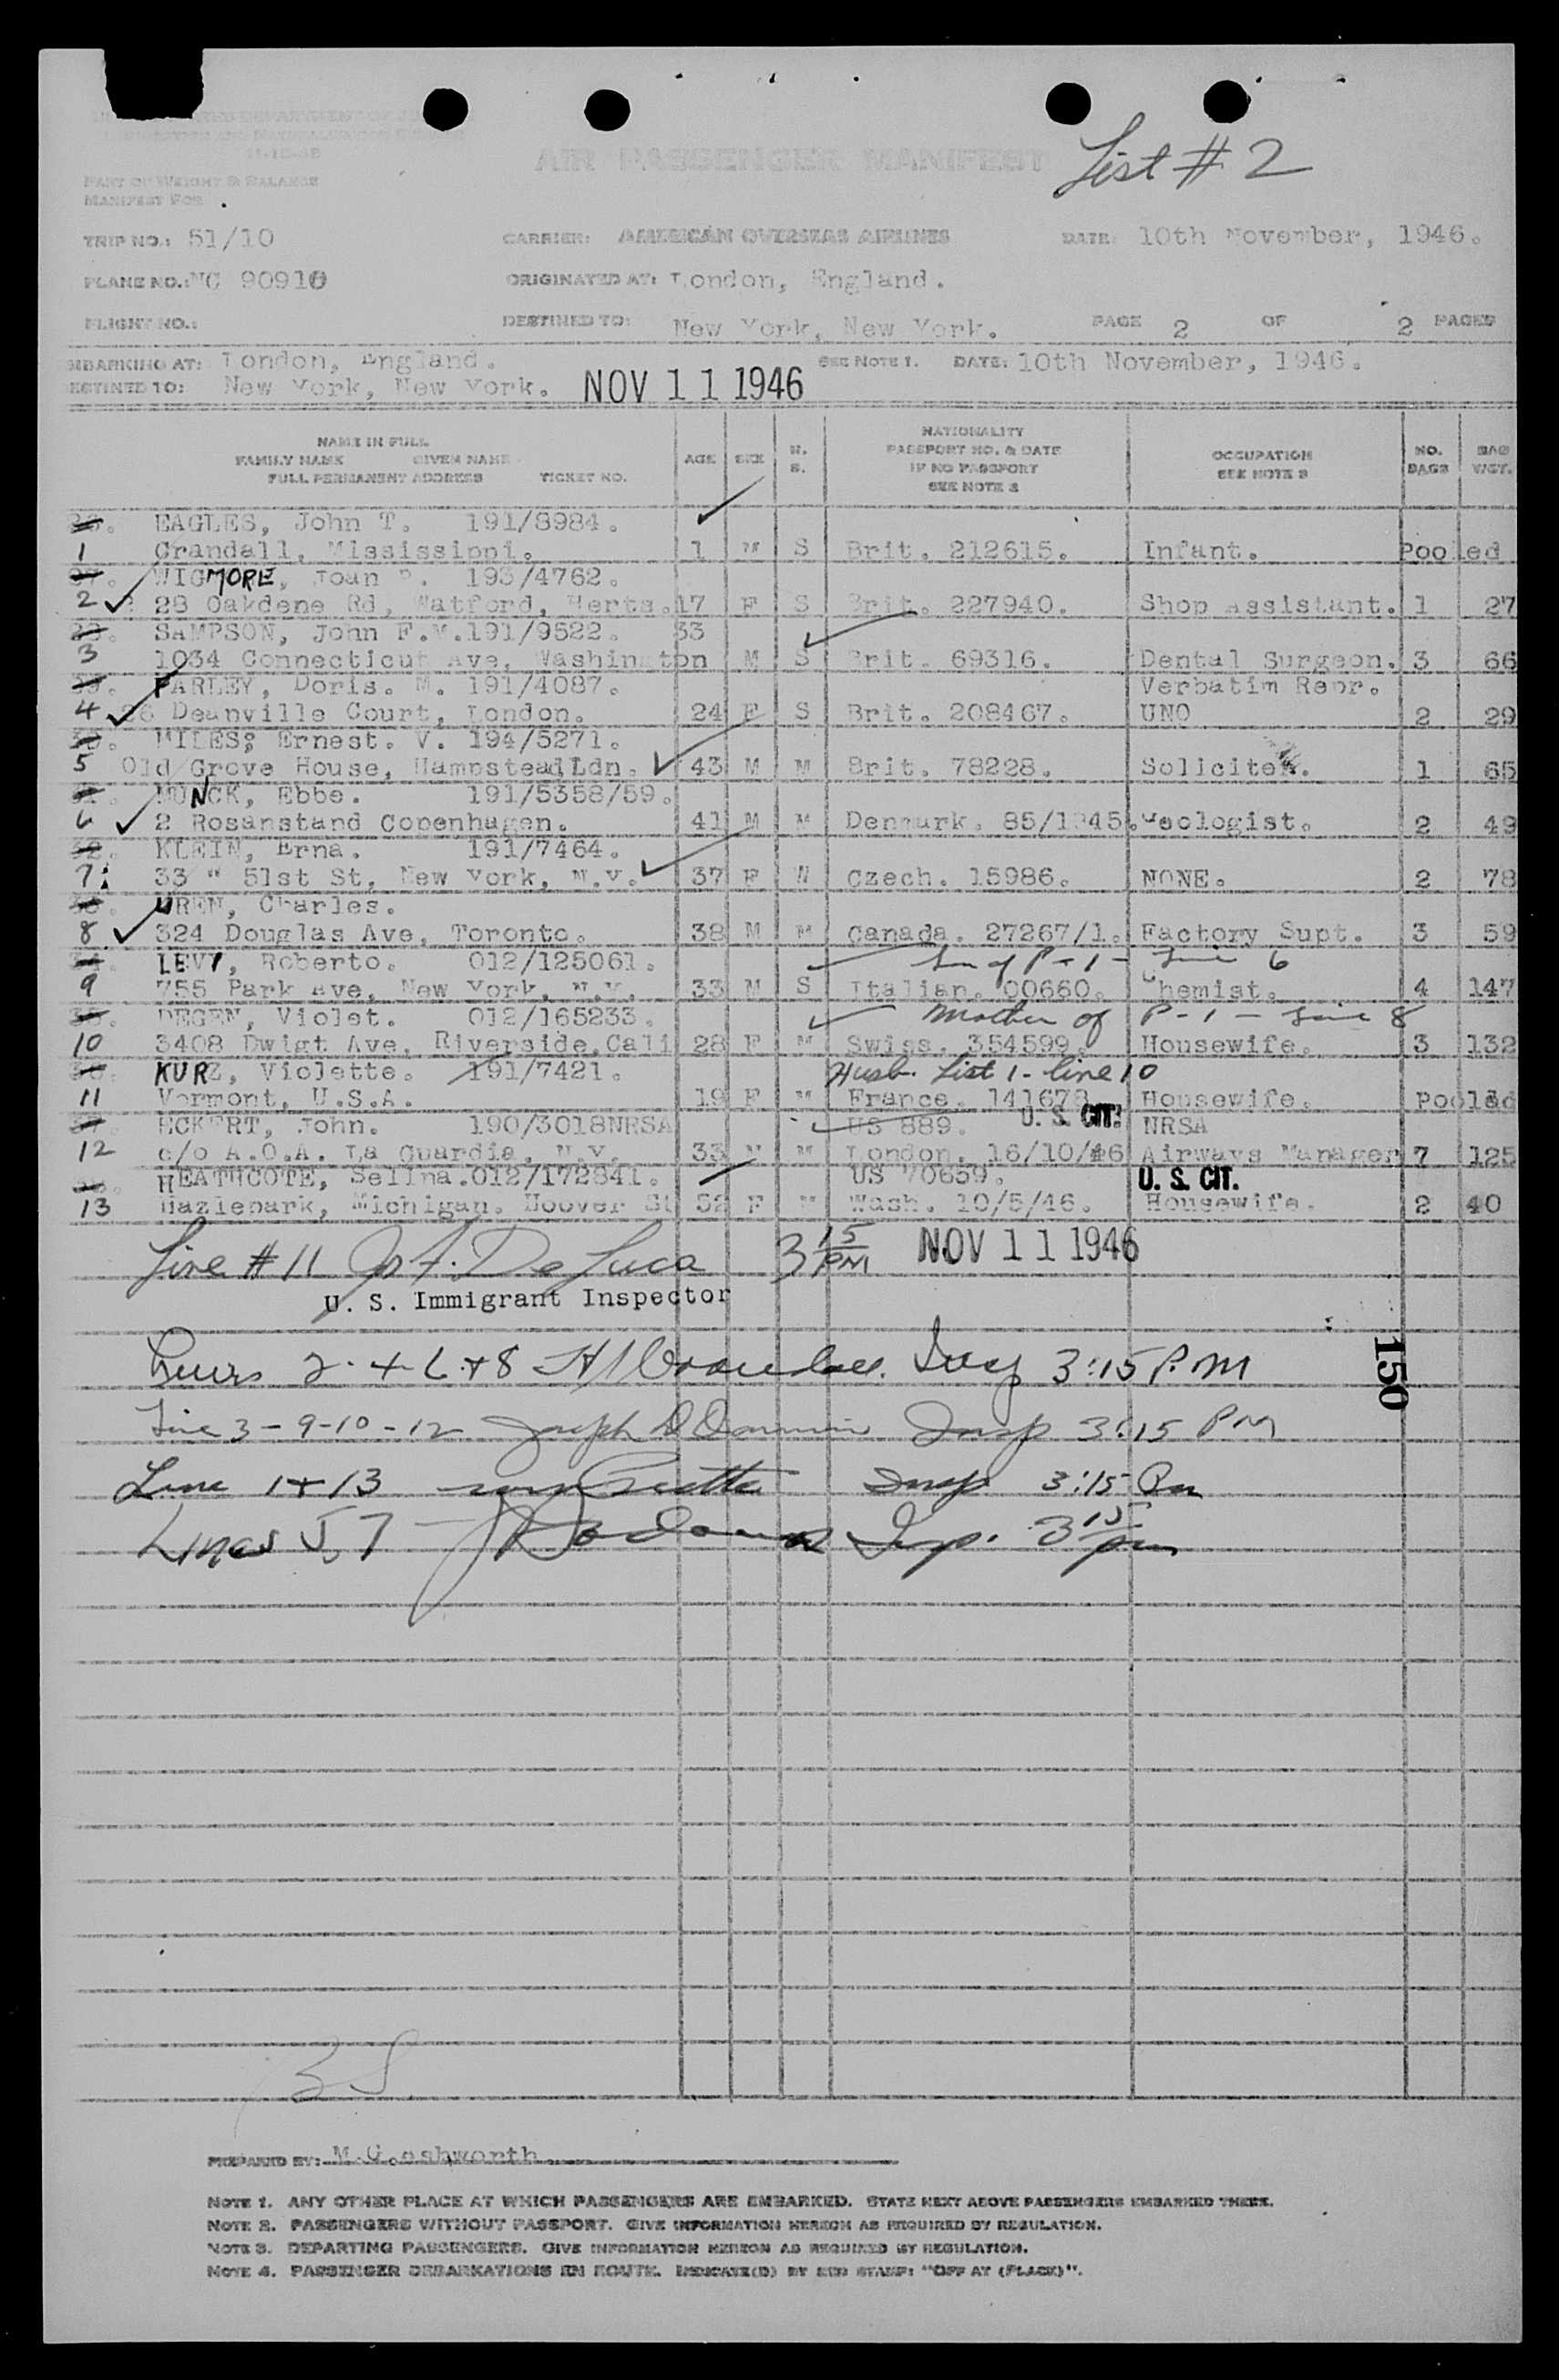 List # 2
AIR PASSENGER MANIFEST
PART OF WEIGHT & BALANCE
MANIFEST FOR
TRIP NO.: 51/10 CARRIER: AMERICAN OVERSEAS AIRLINES DATE: 10th November, 1946.
PLANE NO.: NC 90910 ORIGINATED AT: London, England.
FLIGHT NO.: DESTINED TO: New York, New York. PAGE 2 OF 2 PAGES
MBARKING AT: London, England. SEE NOTE 1. DATE: 10th November, 1946.
ESTINED TO: New York, New York. NOV 11 1946
NAME IN FULL
FAMILY NAME GIVEN NAME
FULL PERMANENT ADDRESS TICKET NO. AGE SEX M. S. NATIONALITY PASSPORT NO. & DATE IF NO PASSPORT SEE NOTE 2 OCCUPATION SEE NOTE 3 NO. BAGS BAG WGT.
EAGLES, John T. 191/8984.
1 Crandall, Mississippi. 1 M S Brit. 212615. Infant. Pooled
WIGMORE, Joan 193/4762.
2 28 Oakdene Rd, Watford, Herts. 17 F S Brit. 227940. Shop Assistant. 1 27
SAMPSON, John F.V. 191/9522. 33
3 1034 Connecticut Ave, Washington M S Brit. 69316. Dental Surgeon. 3 66
FARLEY, Doris. M. 191/4087. Verbatim Repr.
4 26 Deanville Court, London. 24 F S Brit. 208467. UNO 2 29
MILES; Ernest. V. 194/5271.
5 Old Grove House, Hampstead Ldn. 43 M M Brit. 78228. Soliciter. 1 65
MUNCK, Ebbe. 191/5358/59.
6 2 Rosanstand Copenhagen. 41 M M Denmark. 85/1945. Geologist. 2 49
KLEIN, Erna. 191/7464.
7 33 W 51st St, New York, N.Y. 37 F W Czech. 15986. NONE. 2 78
UREN, Charles.
8 324 Douglas Ave, Toronto. 38 M M Canada. 27267/1. Factory Supt. 3 59
LEVY, Roberto. 012/125061. Son of P-1- Line 6
9 755 Park Ave, New York, N.Y. 33 M S Italian. 00660. Chemist. 4 147
DEGEN, Violet. 012/165233. Mother of P-1- Line 8
10 3408 Dwigt Ave, Riverside, Cali 28 F M Swiss. 354599. Housewife. 3 132
KURZ, Violette. 191/7421. Husb. List 1- line 10
11 Vermont, U.S.A. 19 F M France. 141678 Housewife. Pooled
ECKERT, John. 190/3018NRSA US 889. U. S. CIT. NRSA
12 c/o A.O.A. La Guardia, N.Y. 33 M M London. 16/10/46 Airways Manager 7 125
HEATHCOTE, Selina. 012/172841. US 70659. U. S. CIT.
13 Hazlepark, Michigan. Hoover St 52 F M Wash. 10/5/46. Housewife. 2 40
Line # 11 De Luca 3 15 PM NOV 11 1946
U. S. Immigrant Inspector
2.4.6+8 3:15 P.M
150
Line 3-9-10-12 Joseph Insp 3:15 PM
Line 1+13 Insp 3:15 Pm
Lines 5, 7 Insp. 3 15 pm
PREPARED BY: M.G. Ashworth
NOTE 1. ANY OTHER PLACE AT WHICH PASSENGERS ARE EMBARKED. STATE NEXT ABOVE PASSENGERS EMBARKED THERE.
NOTE 2. PASSENGERS WITHOUT PASSPORT. GIVE INFORMATION HEREON AS REQUIRED BY REGULATION.
NOTE 3. DEPARTING PASSENGERS. GIVE INFORMATION HEREON AS REQUIRED BY REGULATION.
NOTE 4. PASSENGER DEBARKATIONS EN ROUTE. INDICATE(D) BY RED STAMP: "OFF AT (PLACE)".